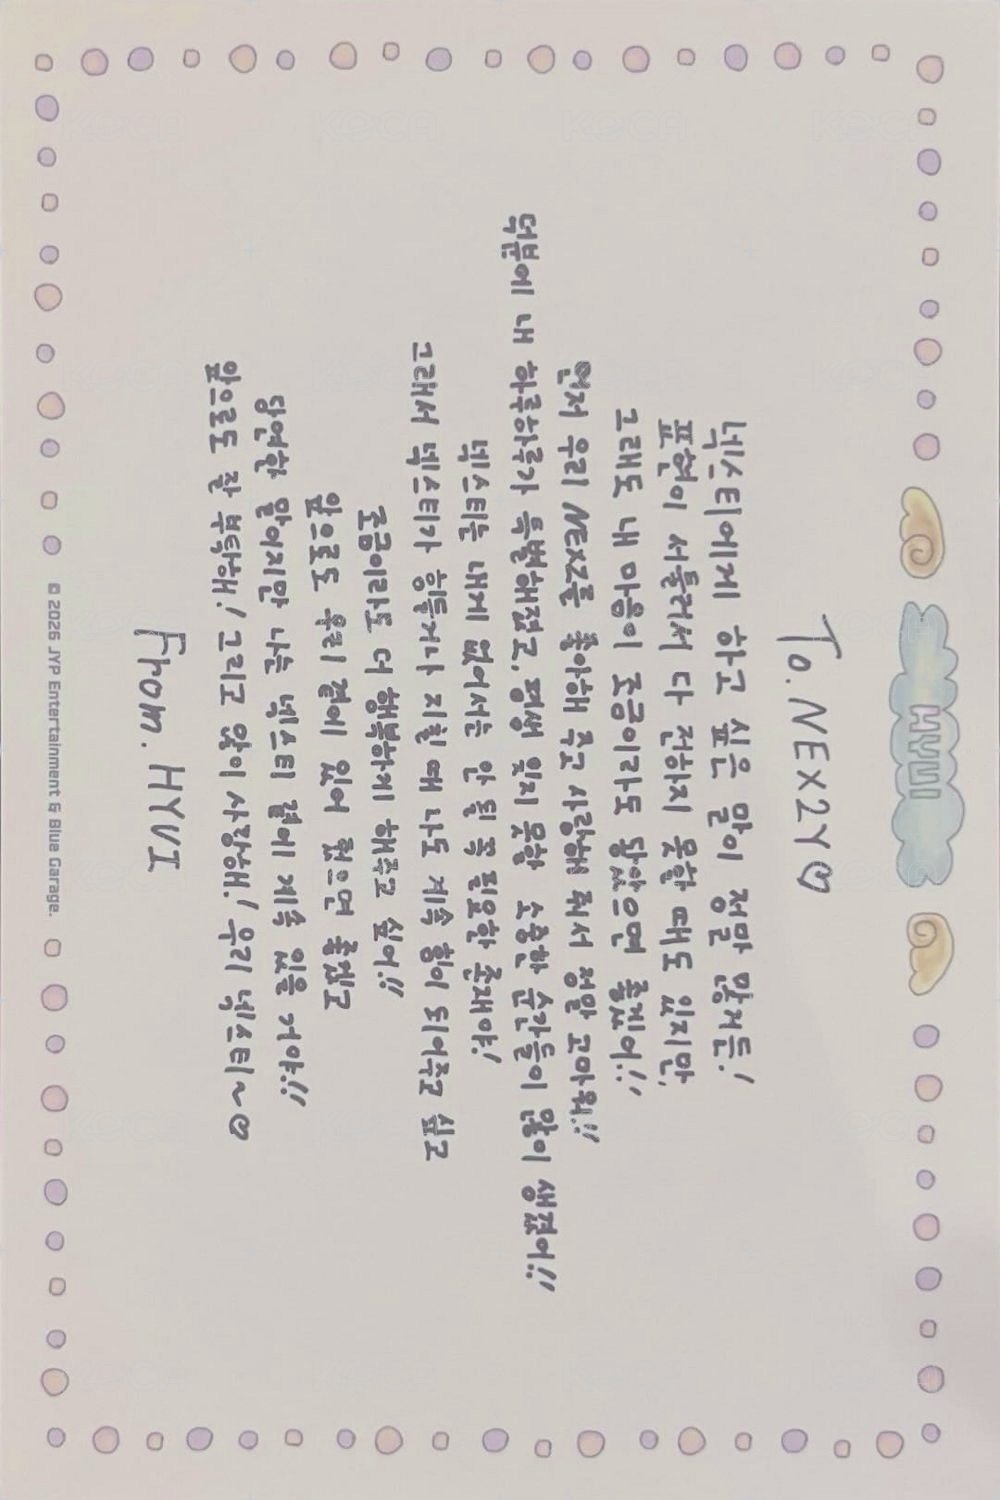 HYUI
To. NEX2Y♡
넥스티에게 하고 싶은 말이 정말 많거든!
표현이 서툴러서 다 전하지 못할 때도 있지만,
그래도 내 마음이 조금이라도 닿았으면 좋겠어!!
먼저 우리 NEXZ를 좋아해 주고 사랑해 줘서 정말 고마워!!
덕분에 내 하루하루가 특별해졌고, 평생 잊지 못할 소중한 순간들이 많이 생겼어!!
넥스티는 내게 없어서는 안 될 꼭 필요한 존재야!
그래서 넥스티가 힘들거나 지칠 때 나도 계속 힘이 되어주고 싶고
조금이라도 더 행복하게 해주고 싶어!!
앞으로도 우리 곁에 있어 줬으면 좋겠고
당연한 말이지만 나는 넥스티 곁에 계속 있을 거야!!
앞으로도 잘 부탁해! 그리고 많이 사랑해! 우리 넥스티~♡
From. HYUI
© 2026 JYP Entertainment & Blue Garage.
KOCA